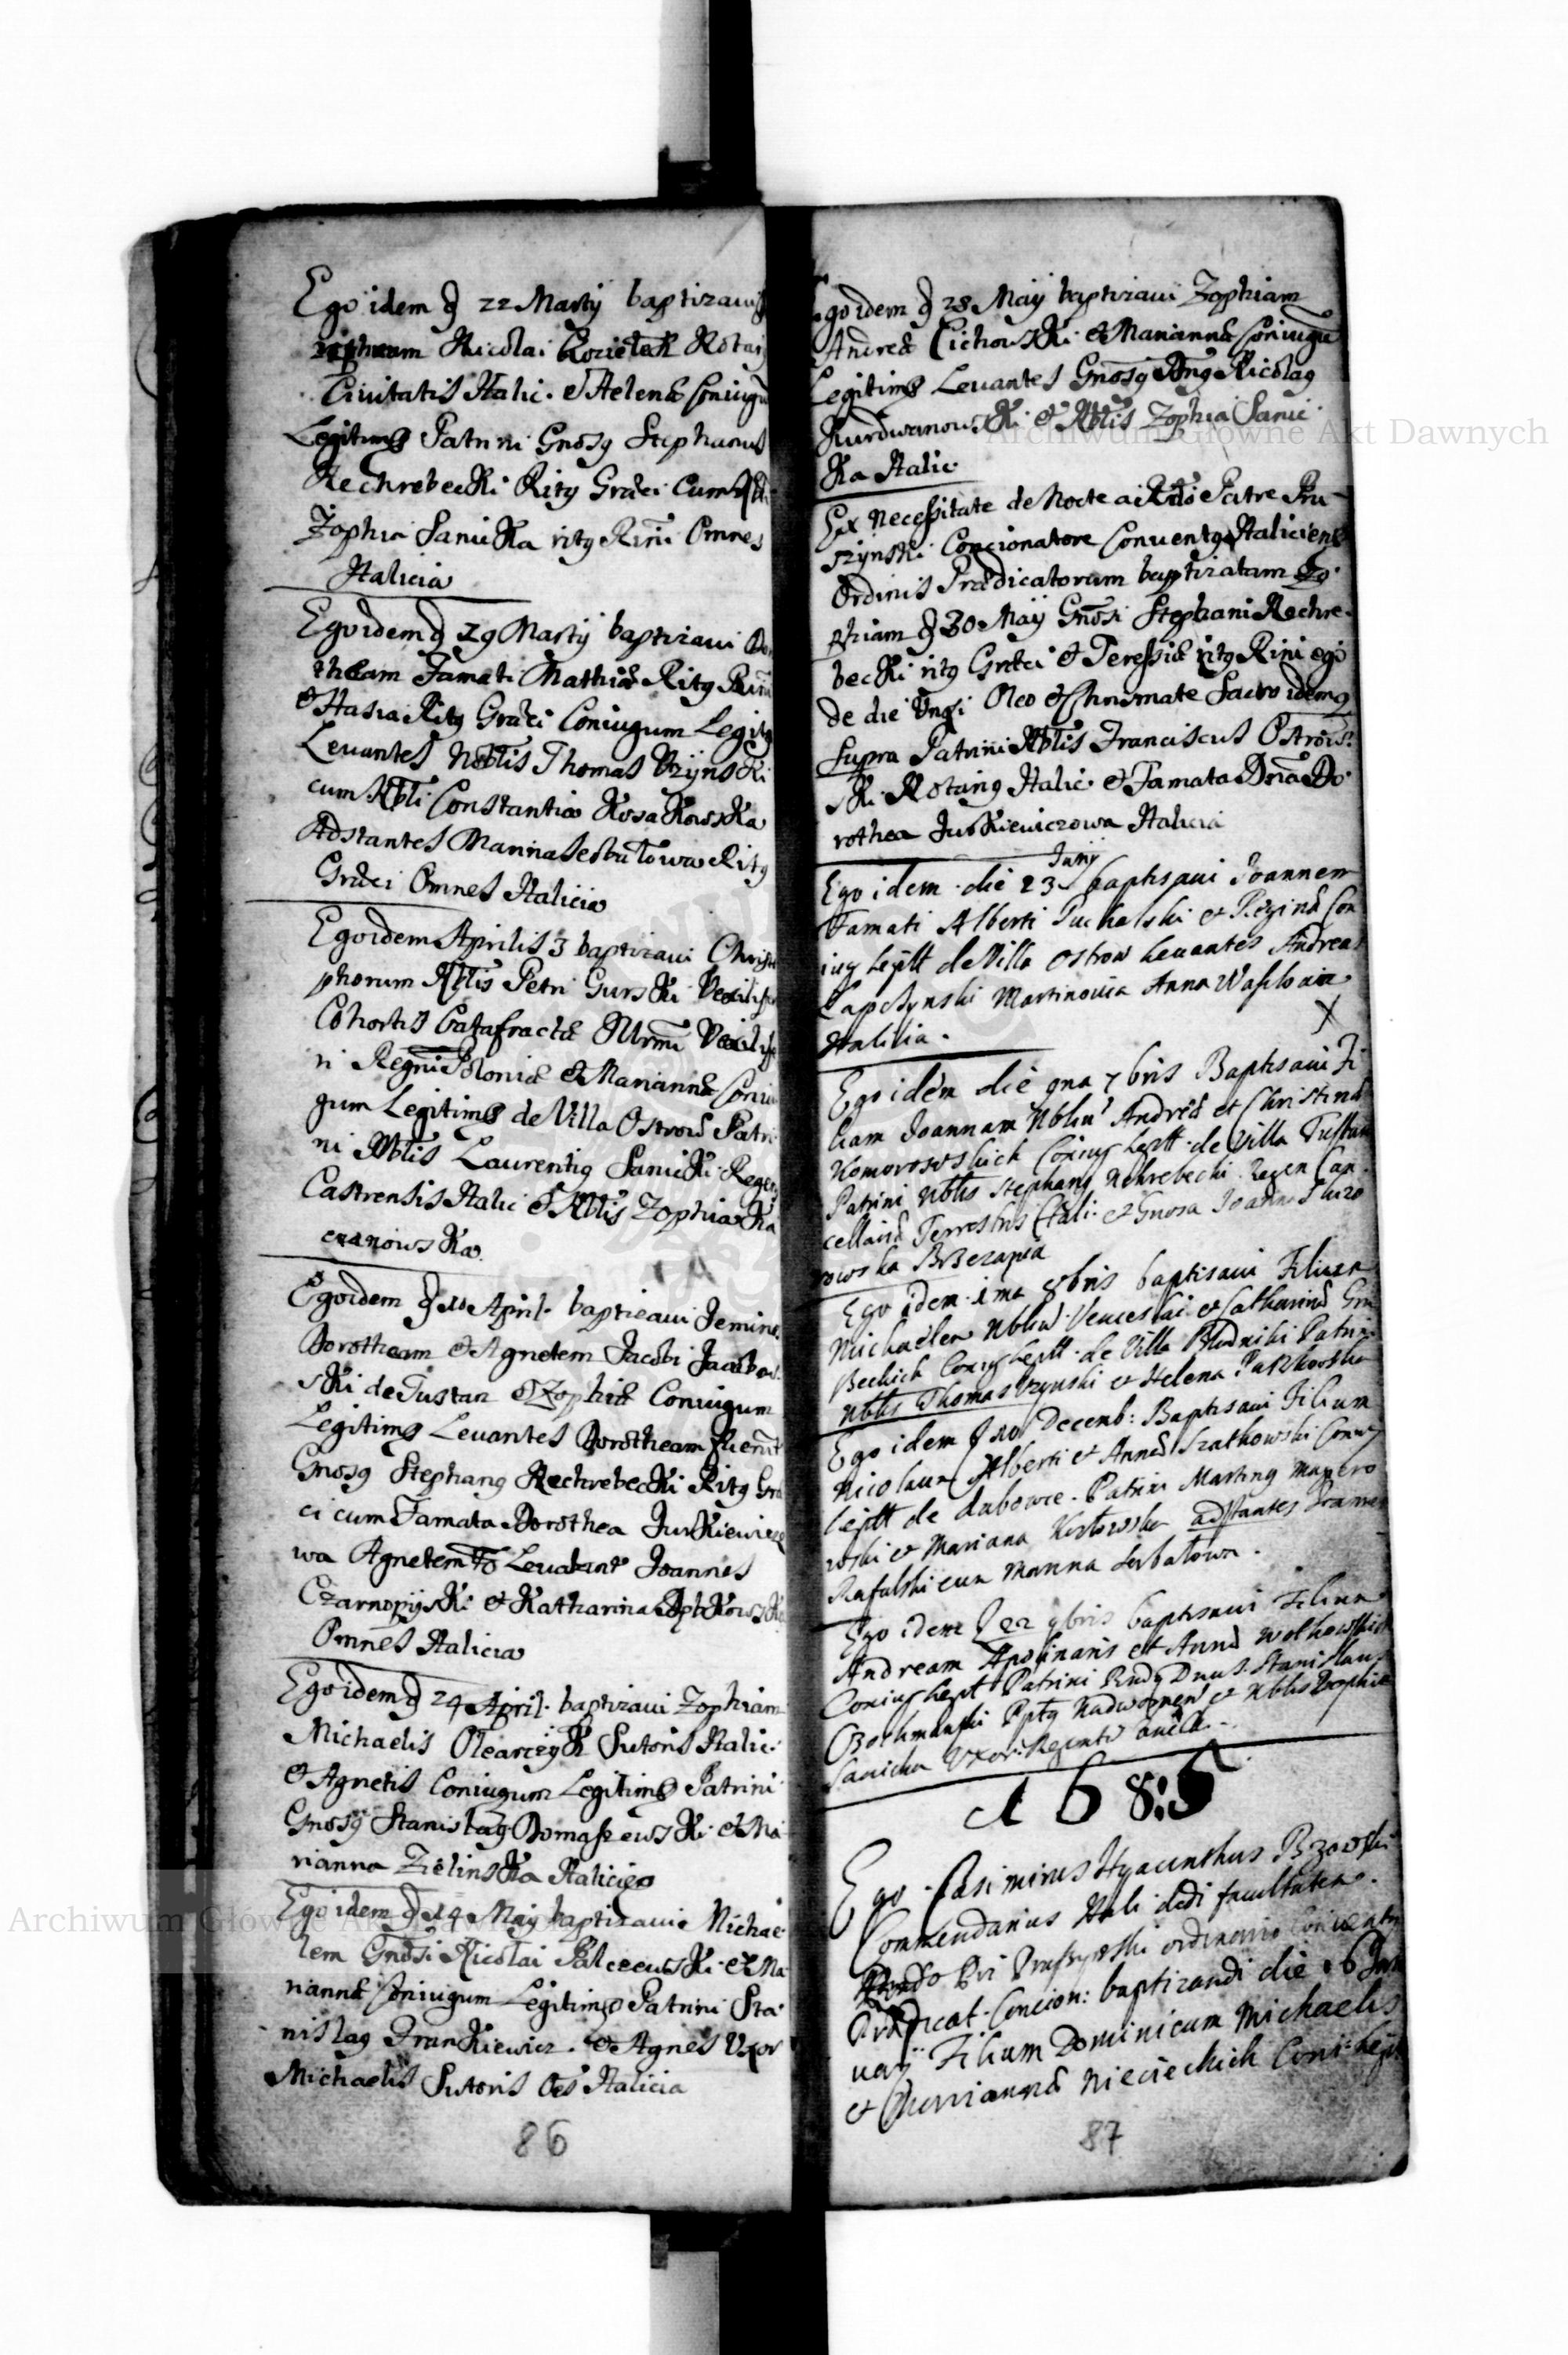 Ego idem d 22 Martij baptizaui
Nicolai Kozietek Notarij
Ciuitatis Halic. et Helenæ Coniugū
Legitimoꝝ Patrini Gnosg Stephanus
Nechrebecki Ritg Græci cum Nbli
Zophia Sanicka ritg Rm̃i Omnes
Halicia
Ego idem d 29 Martij baptizaui Do
theam Famati Mathiæ Ritg Rm̃i
et Hasia Ritg Græci Coniugum Legitg
Leuantes Nobtis Thomas Uzynski
cum Nbli Constantia Kosakowska
Adstantes Marina Serbatowa Ritg
Græci Omnes Halicia
Ego idem Aprilis 3 baptizaui Christo
phorum Nbtis Petri Gurski Vexilife
Cohortis Catafractæ Vexilife
ri Regni Poloniæ et Mariannæ Coniu
gum Legitimoꝝ de Villa Ostrow Patri
ni Nbtis Laurentig Sanicki Regens
Castrensis Halic et Nbtis Zophia Ka
czanowska
Ego idem d 10 April. baptizaui Jemine
Dorotheam et Agnetem Jacobi Jacobow
ski de Tustan et Zophiæ Coniugum
Legitimoꝝ Leuantes Dorotheam fuerūt
Gnosg Stephang Nechrebecki Ritg Græ
ci cum Famata Dorothea Jurkiewicze
wa Agnetem Leuabant Joannes
Czarnopyski et Katharina
Omnes Halicia
Ego idem d 24 April. baptizaui Zophiam
Michaelis Olearczyk Sutoris Halic.
et Agnetis Coniugum Legitimoꝝ Patrini
Gnosg Stanistag Domaszewski et Ma
rianna Zielinska Halicien
Ego idem d 14 Maij baptizaui Michae
lem Gnosi Nicolai Palczewski et Ma
riannæ Coniugum Legitimoꝝ Patrini Sta
nislag Frankiewicz et Agnes Uxor
Michaelis Sutoris Oēs Halicia
86
Ego idem d 28 Maij baptizaui Zophiam
Andreæ Cichowski et Mariannæ Coniugū
Legitimoꝝ Leuantes Gnosg Nicolag
Kurdwanowski et Nbtis Zophia Sanic
ka Halic.
Ex Necessitate de Nocte a Rndo Patre Pru
szynski Concionatore Conuentg Haliciens
Ordinis Prædicatorum baptizatam Zo
phiam d 30 Maij Gnosi Stephani Nechre
becki ritg Græci et Teressiæ ritg Rm̃i ego
de die Unxi Oleo et Chrismate Sacro idemq
Supra Patrini Nbtis Franciscus Ostrow
ski Notarig Halic. et Famata Dña Do
rothea Jurkiewiczowa Halicia
Ego idem die 23 Junij baptisaui Joannem
Famati Alberti Puchalski et Reginæ Con
iug legitt de Villa Ostrow Leuantes Andreas
Lapczynski Martinouia Anna
Halicia.
X
Ego idem die 9na 7bris Baptisaui Fi
liam Joannam Nbliū Andreæ et Christinæ
Komorowskich Coniug legitt. de Villa Tustan
Patrini Nbtis Stephang Nchrebecki Regen Can
cellariæ Terrestris Hali: et Gnosa Joanna
rowska
Ego idem 1ma 8bris baptisaui Filium
Michaelem Nbliū Venceslai et Catharinæ
Coniug legitt. de Villa Bludniki Patrini
Nbtis Thomas Uzynski et Helena Paszkowska
Ego idem d 10 Decemb: Baptisaui Filium
Nicolaum Alberti et Annæ Szatkowski Coniug
legitt de dubowce. Patrini Marting
wski et Mariana adstantes
Rafalski cum Marina Serbatowa.
Ego idem d 22 9bris baptisaui Filium
Andream Apolinaris et Annæ Wolkowskich
Coniug legit Patrini Rndg Dnus Stanislaus
Bochmanski Pptg Nadwornen et Nbtis Zophia
Sanicka Uxor Regentis
1685
Ego Casimirus Hyacinthus Bzowski
Commendarius Hali dedi facultatem
Rndo Pri Pruszynski ordinario Conuentg
Prædicat. Concion: baptizandi die 6 Jan
uarij Filium Dominicum Michaelis
et Mariannæ Nieciechich Coni: legit
87
Archiwum Główne Akt Dawnych